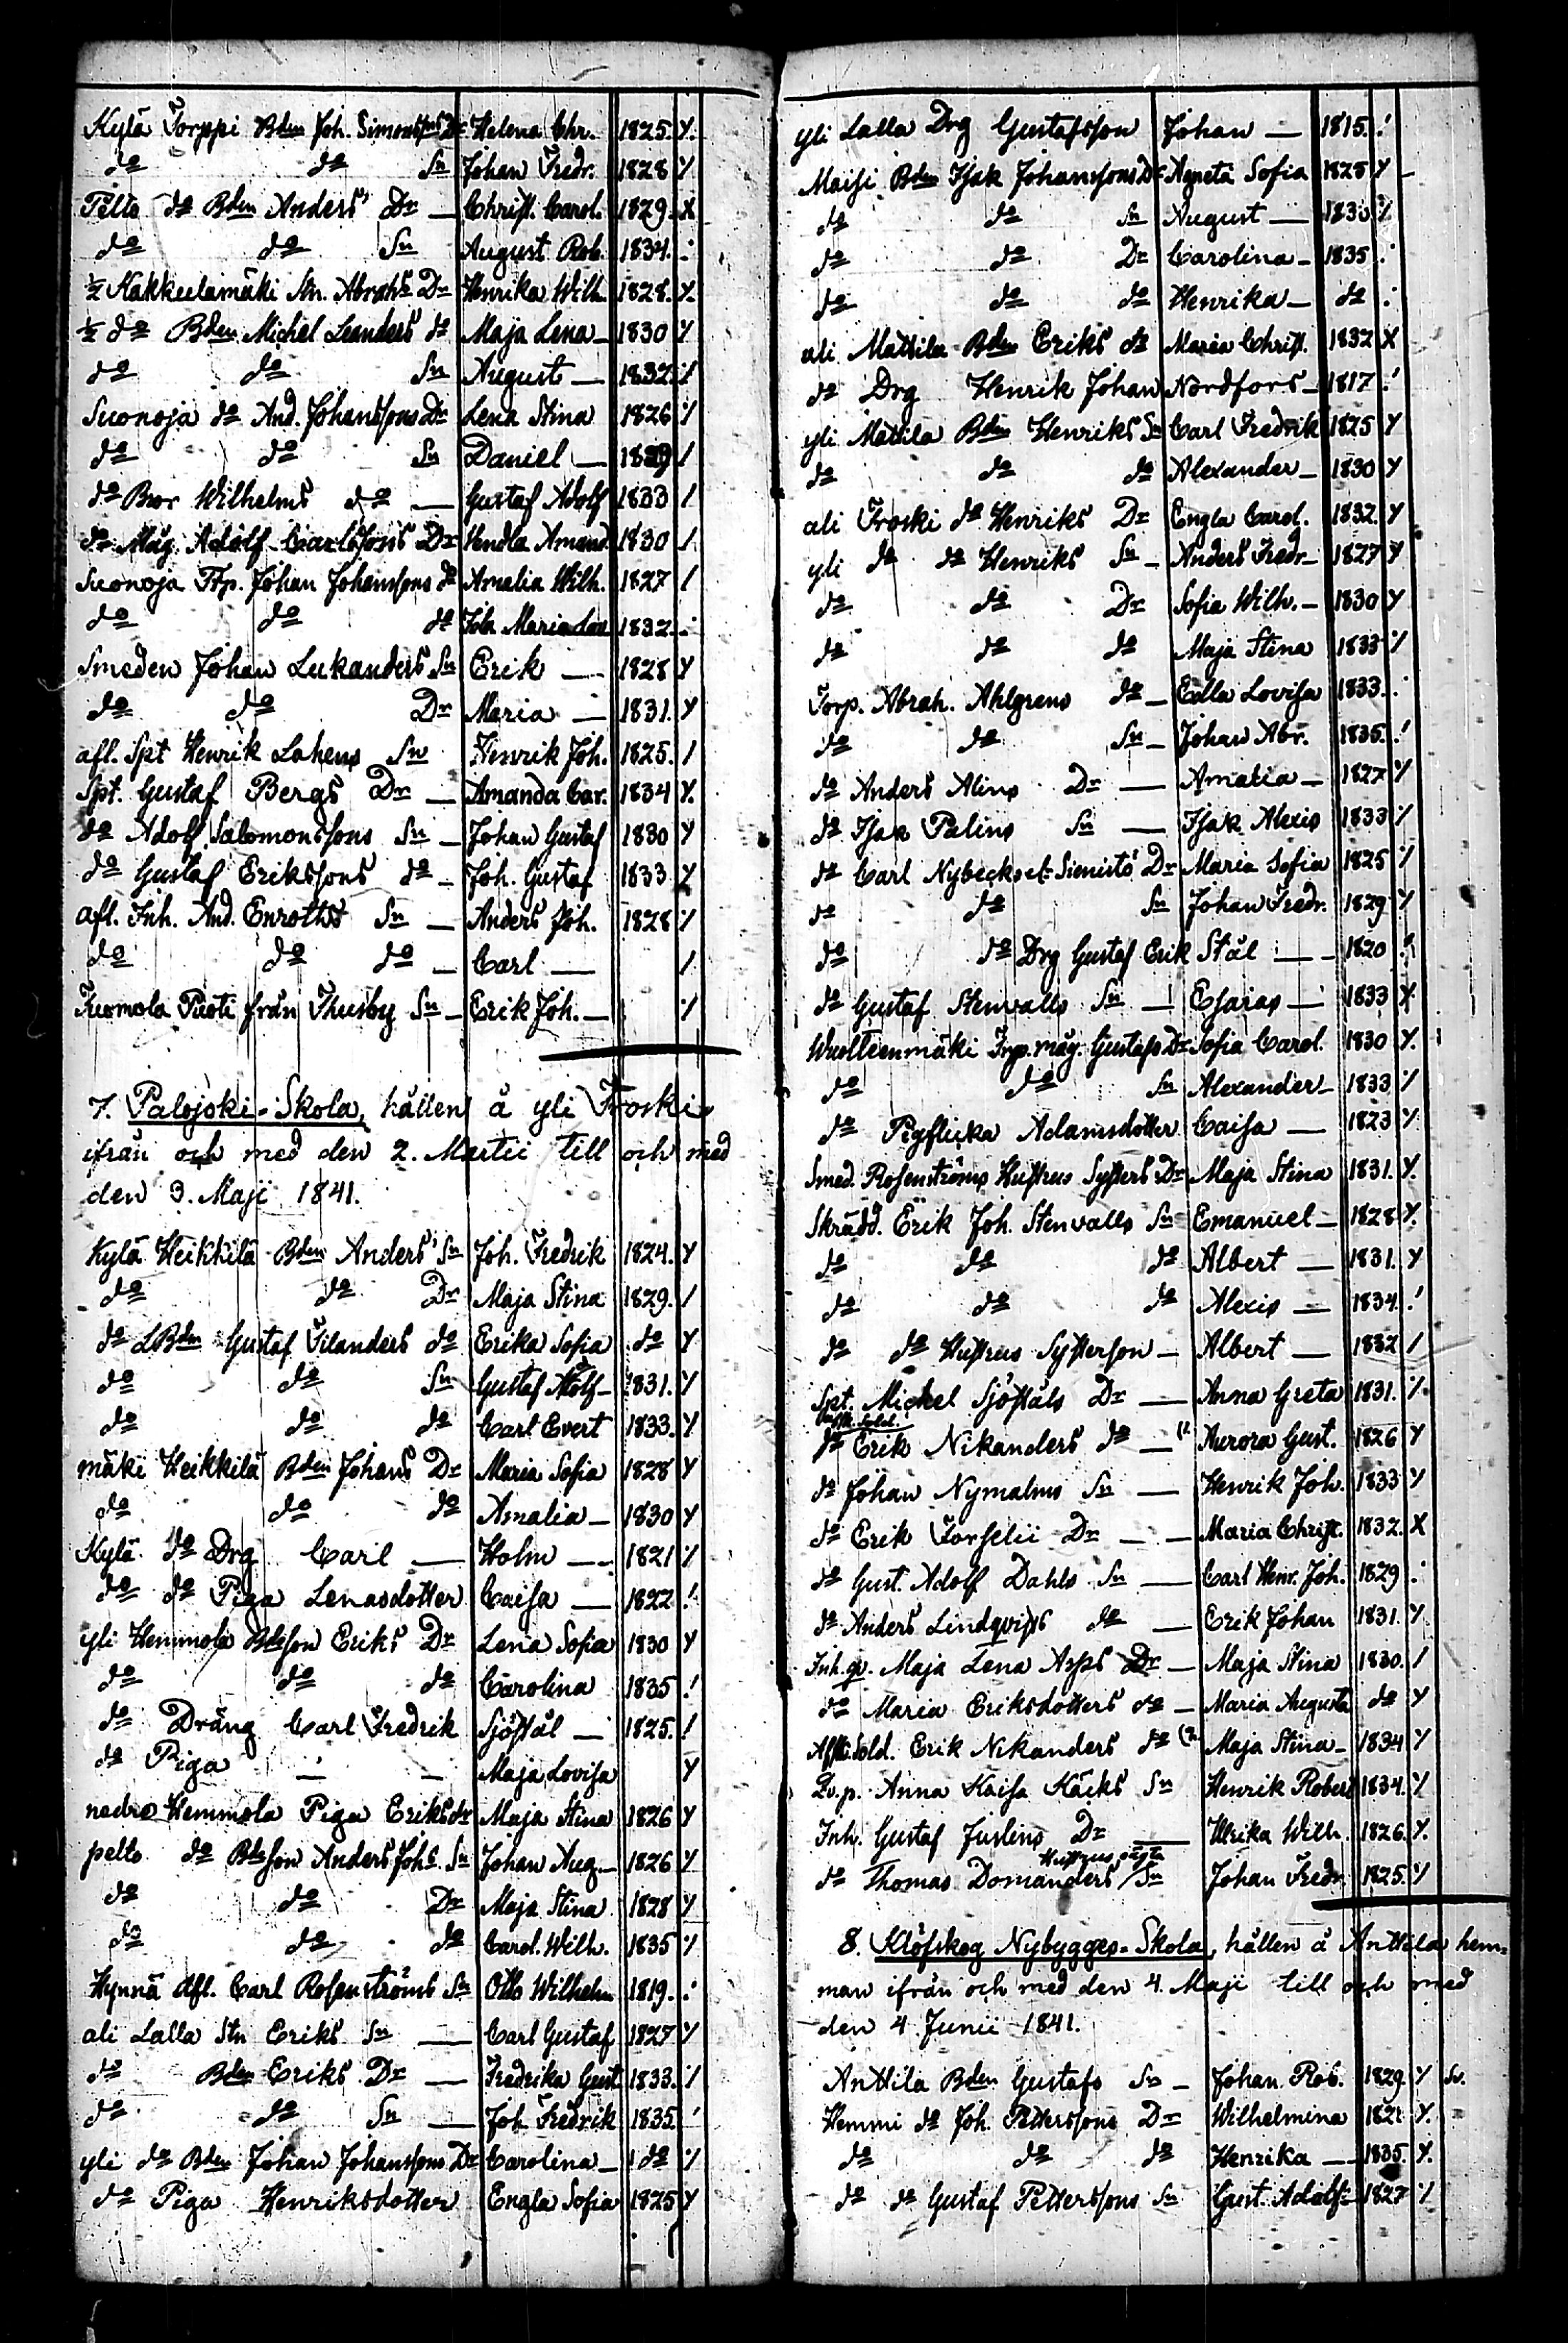 Kylä Torppi Bden Joh. Simonssons Dr Helena Chr. 1825. Y.
do do Sn Johan Fredr. 1828 Y
Pelto do Bden Anders' Dr — Christ. Carol. 1829. X
do do Sn August Rob. 1834. :
½ Kakkulamäki Stn. Abrahs Dr Henrika Wilh. 1828. Y.
½ do Bden Michel Leanders do Maja Lena — 1830 Y
do do Sn August — 1832. /
Suonoja do And. Johanssons Dr Lena Stina 1826 /
do do Sn Daniel — 1829 /
do Bror Wilhelms do — Gustaf Adolf 1833 /
do Måg Adolf Carlssons Dr Hendla Amand 1830 /
Suonoja Trp. Johan Johanssons do Amalia Wilh. 1827 /
do do do Maria 1832. :
Smeden Johan Lukanders Sn Erik — 1828 Y
do do Dr Maria — 1831. Y
afl. Spt Henrik Lahens Sn Henrik Joh. 1825. /
Spt. Gustaf Bergs Dr — Amanda Car. 1834 Y.
do Adolf Salomonssons Sn — Johan Gustaf 1830 Y
do Gustaf Erikssons do — Joh. Gustaf 1833 Y
afl. Inh. And. Enroths Sn — Anders Joh. 1828 /
do do do — Carl — /
från Thusby Sn — Erik Joh. — /
7. Palojoki-Skola, hållen å yli Troski
ifrån och med den 2. Martii till och med
den 3. Maji 1841.
Kylä Heikkilä Bden Anders' Sn Joh. Fredrik 1824. Y
do do Dr Maja Stina 1829. /
do LBden Gustaf Silanders do Erika Sofia do Y
do do Sn Gustaf Adolf — 1831. Y
do do do Carl Evert 1833. Y
mäki Heikkilä Bden Johans Dr Maria Sofia 1828 Y
do do do Amalia — 1830 Y
Kylä do Drg Carl — Holm — 1821 /
do do Piga Lenasdotter Caisa — 1822 !
yli Hemmola Bdeson Eriks Dr Lena Sofia 1830 Y
do do do Carolina 1835 !
do Dräng Carl Fredrik Sjöstål — 1825. /
do Piga — — Maja Lovisa Y
nedre Hemmola Piga Eriksdr Maja Stina 1826 Y
pelto do Bdeson Anders Johs. Sn Johan Aug. — 1826 Y
do do Dr Maja Stina 1828 Y
do do do Carol. Wilh. 1835 Y
Hynnä Afl. Carl Rosenströms Sn Otto Wilhelm 1819. :
ali Lalla Stn Eriks Sn — Carl Gustaf 1827 Y
do Bden Eriks Dr — Fredrika Gust 1833. /
do do Sn — Joh. Fredrik 1835. !
yli do Bden Johan Johanssons Dr Carolina — do /
do Piga Henriksdotter Engla Sofia 1825 Y
yli Lalla Drg Gustafsson Johan — 1815. !
Maisi Bden Isak Johanssons Dr Agneta Sofia 1828 Y
do do Sn August — 1830 /
do do Dr Carolina — 1835 :
do do do Henrika — do :
ali Mattila Bden Eriks do Maria Christ. 1832 X
do Drg Henrik Johan Nordfors — 1817 !
yli Mattila Bden Henriks Sn Carl Fredrik 1825 Y
do do do Alexander — 1830 Y
ali Troski do Henriks Dr Engla Carol. 1832. Y
yli do do Henriks Sn — Anders Fredr — 1827 Y
do do Dr Sofia Wilh. — 1830 Y
do do do Maja Stina 1833 /
Torp. Abrah. Ahlgrens do — Edla Lovisa 1833. :
do do Sn — Johan Abr. 1835. !
do Anders Alins Dr — Amalia — 1827 Y
do Isak Palins Sn — Isak Alexis 1833 /
do Carl Nybecks Dr Maria Sofia 1825 /
do do Sn Johan Fredr. 1829 Y
do do Drg Gustaf Erik Stål — 1820 !
do Gustaf Stenvalls Sn — Esaias — 1833 X
Wuolteenmäki Trp. måg. Gustafs Dr Sofia Carol. 1830 Y.
do do Sn Alexander — 1833 /
do Pigflicka Adamsdotter Caisa — 1823 Y
Smed. Rosenströms Hustrus Systers Dr Maja Stina 1831. Y.
Skrädd. Erik Joh. Stenvalls Sn Emanuel — 1828 Y.
do do do Albert — 1831. Y
do do do Alexis — 1834. !
do do Hustrus Systerson — Albert — 1832 /
Spt. Michel Sjöståls Dr — Anna Greta 1831. /
do Erik Nikanders do — (1. Aurora Gust. 1826 Y
do Johan Nymalms Sn — Henrik Joh. 1833 Y
do Erik Forselii Dr — — Maria Christ. 1832. X
do Gust. Adolf Dahls Sn — Carl Henr. Joh. 1829 :
do Anders Lindqvists do — Erik Johan 1831. Y
Inh. qv. Maja Lena Asps Dr — Maja Stina 1830. /
do Maria Eriksdotters do — Maria Augusta do Y
Afsk. Sold. Erik Nikanders do (2. Maja Stina — 1834 Y
Qv. p. Anna Kaisa Käcks Sn Henrik Robert 1834. /
Inh. Gustaf Juslins Dr — Ulrika Wilh. 1826. Y.
do Thomas Domanders Hustrus Sn Johan Fredr. 1825. Y
8. Klöfskog Nybygges-Skola, hållen å Anttila hem-
man ifrån och med den 4. Maji till och med
den 4 Junii 1841.
Anttila Bden Gustafs Sn — Johan Rob. 1829. Y Sv.
Hemmi do Joh. Petterssons Dr Wilhelmina Y.
do do do Henrika — 1835. Y.
do do Gustaf Petterssons Sn Gust. Adolf — 1827 /